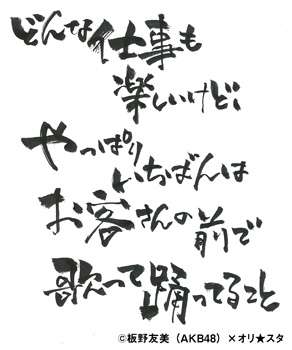 どんな仕事も
楽しいけど、
やっぱり
いちばんは
お客さんの前で
歌って踊ってること
©板野友美（AKB48）×オリ★スタ